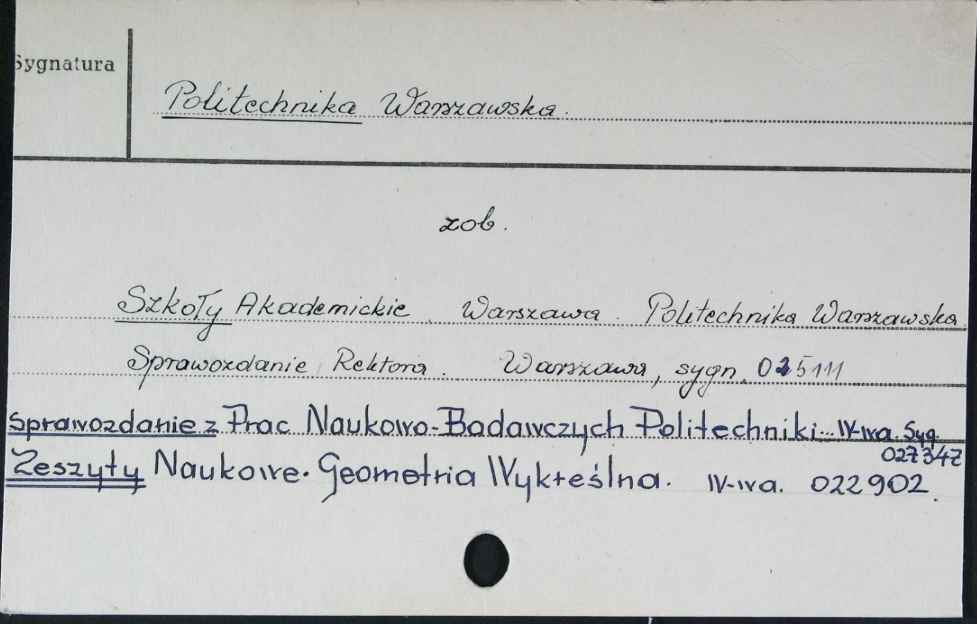 Sygnatura
Politechnika Warszawska.
zob.
Szkoły Akademickie. Warszawa. Politechnika Warszawska.
Sprawozdanie Rektora. Warszawa, sygn. 025111
Sprawozdanie z Prac Naukowo-Badawczych Politechniki.. W-wa. Syg
027347
Zeszyty Naukowe. Geometria Wykreślna. W-wa. 022902.